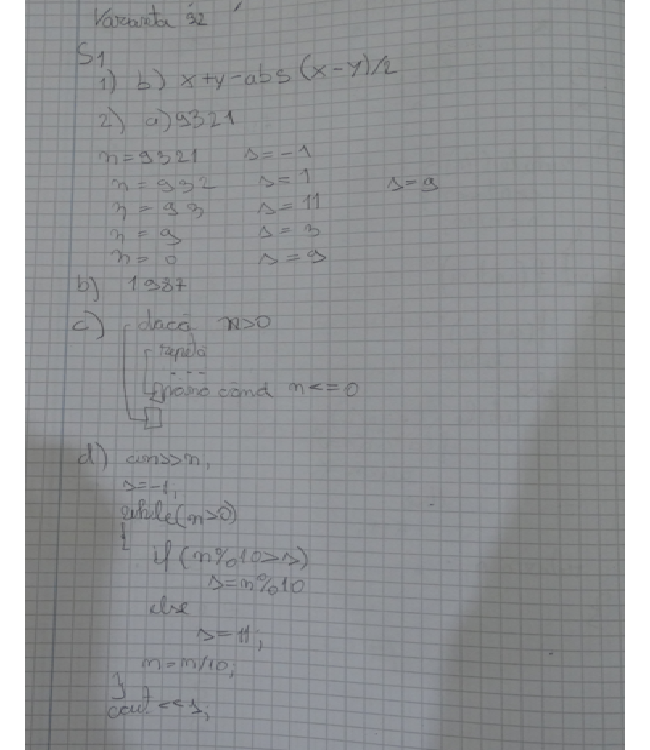 Varianta 32
S1
1) b) x+y-abs(x-y)/2
2) a) 9321
n=9321 s=-1
n=932 s=1 s=9
n=93 s=11
n=9 s=3
n=0 s=9
b) 1987
c) dacă n>0
repetă
...
până când n<=0
d) cin>>n;
s=-1;
while(n>0)
{
if(n%10>s)
s=n%10
else
s=11;
n=n/10;
}
cout<<s;